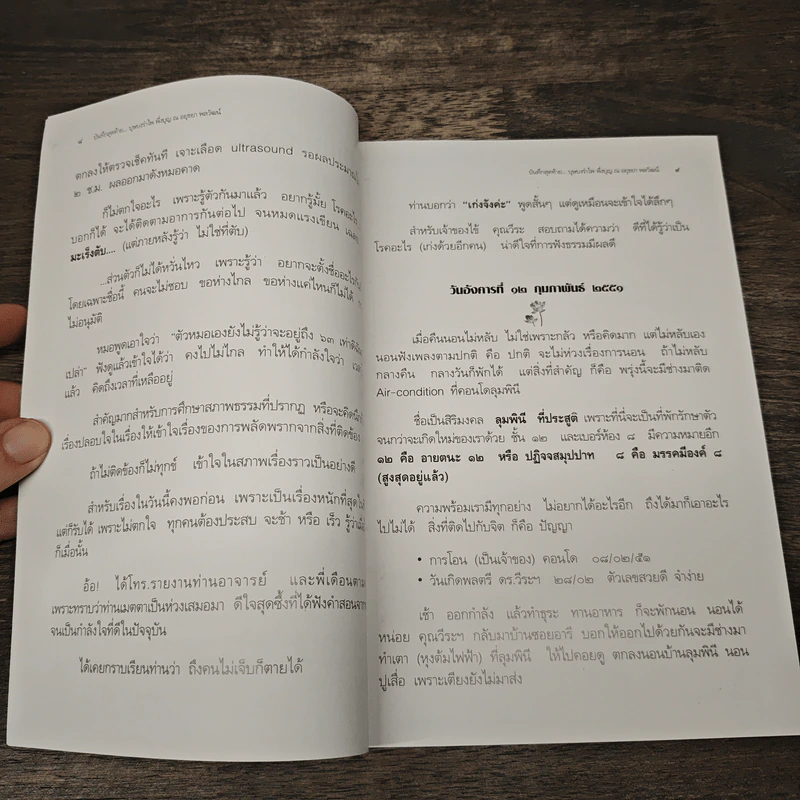 ๘ บันทึกสุดท้าย... บุษบงรำไพ พึ่งบุญ ณ อยุธยา พลวัฒน์
ตกลงให้ตรวจเช็คทันที เจาะเลือด ultrasound รอผลประมาณ
๒ ช.ม. ผลออกมาดังหมอคาด
ก็ไม่ตกใจอะไร เพราะรู้ตัวกันมาแล้ว อยากรู้มั้ย โรคอะไร
บอกก็ได้ จะได้ติดตามอาการกันต่อไป จนหมดแรงเขียน
มะเร็งตับ.... (แต่ภายหลังรู้ว่า ไม่ใช่ที่ตับ)
...ส่วนตัวก็ไม่ได้หวั่นไหว เพราะรู้ว่า อยากจะตั้งชื่ออะไรก็
โดยเฉพาะชื่อนี้ คนจะไม่ชอบ ขอห่างไกล ขอห่างแค่ไหนก็ไม่ได้
ไม่อนุมัติ
หมอพูดเอาใจว่า "ตัวหมอเองยังไม่รู้ว่าจะอยู่ถึง ๖๓ เท่าดิฉัน
เปล่า" ฟังดูแล้วเข้าใจได้ว่า คงไปไม่ไกล ทำให้ได้กำลังใจว่า
แล้ว คิดถึงเวลาที่เหลืออยู่
สำคัญมากสำหรับการศึกษาสภาพธรรมที่ปรากฏ หรือจะคิดนึก
เรื่องปลอบใจในเรื่องให้เข้าใจเรื่องของการพลัดพรากจากสิ่งที่ติดข้อง
ถ้าไม่ติดข้องก็ไม่ทุกข์ เข้าใจในสภาพเรื่องราวเป็นอย่างดี
สำหรับเรื่องในวันนี้คงพอก่อน เพราะเป็นเรื่องหนักที่สุดใน
แต่ก็รับได้ เพราะไม่ตกใจ ทุกคนต้องประสบ จะช้า หรือ เร็ว รู้ว่าเมื่อ
ก็เมื่อนั้น
อ้อ! ได้โทร.รายงานท่านอาจารย์ และพี่เดือนตาม
เพราะทราบว่าท่านเมตตาเป็นห่วงเสมอมา ดีใจสุดซึ้งที่ได้ฟังคำสอนจาก
จนเป็นกำลังใจที่ดีในปัจจุบัน
ได้เคยกราบเรียนท่านว่า ถึงคนไม่เจ็บก็ตายได้
บันทึกสุดท้าย... บุษบงรำไพ พึ่งบุญ ณ อยุธยา พลวัฒน์ ๙
ท่านบอกว่า "เก่งจังค่ะ" พูดสั้นๆ แต่ดูเหมือนจะเข้าใจได้ลึกๆ
สำหรับเจ้าของไข้ คุณวีระ สอบถามได้ความว่า ดีที่ได้รู้ว่าเป็น
โรคอะไร (เก่งด้วยอีกคน) น่าดีใจที่การฟังธรรมมีผลดี
วันอังการที่ ๑๒ กุมภาพันธ์ ๒๕๕๑
เมื่อคืนนอนไม่หลับ ไม่ใช่เพราะกลัว หรือคิดมาก แต่ไม่หลับเอง
นอนฟังเพลงตามปกติ คือ ปกติ จะไม่ห่วงเรื่องการนอน ถ้าไม่หลับ
กลางคืน กลางวันก็พักได้ แต่สิ่งที่สำคัญ ก็คือ พรุ่งนี้จะมีช่างมาติด
Air-condition ที่คอนโดลุมพินี
ชื่อเป็นสิริมงคล ลุมพินี ที่ประสูติ เพราะที่นี่จะเป็นที่พักรักษาตัว
จนกว่าจะเกิดใหม่ของเราด้วย ชั้น ๑๒ และเบอร์ห้อง ๘ มีความหมายอีก
๑๒ คือ อายตนะ ๑๒ หรือ ปฏิจจสมุปปาท ๘ คือ มรรคมีองค์ ๘
(สูงสุดอยู่แล้ว)
ความพร้อมเรามีทุกอย่าง ไม่อยากได้อะไรอีก ถึงได้มาก็เอาอะไร
ไปไม่ได้ สิ่งที่ติดไปกับจิต ก็คือ ปัญญา
• การโอน (เป็นเจ้าของ) คอนโด ๐๘/๐๒/๕๑
• วันเกิดพลตรี ดร.วีระฯ ๒๘/๐๒ ตัวเลขสวยดี จำง่าย
เช้า ออกกำลัง แล้วทำธุระ ทานอาหาร ก็จะพักนอน นอนได้
หน่อย คุณวีระฯ กลับมาบ้านซอยอารี บอกให้ออกไปด้วยกันจะมีช่างมา
ทำเตา (หุงต้มไฟฟ้า) ที่ลุมพินี ให้ไปคอยดู ตกลงนอนบ้านลุมพินี นอน
ปูเสื่อ เพราะเตียงยังไม่มาส่ง